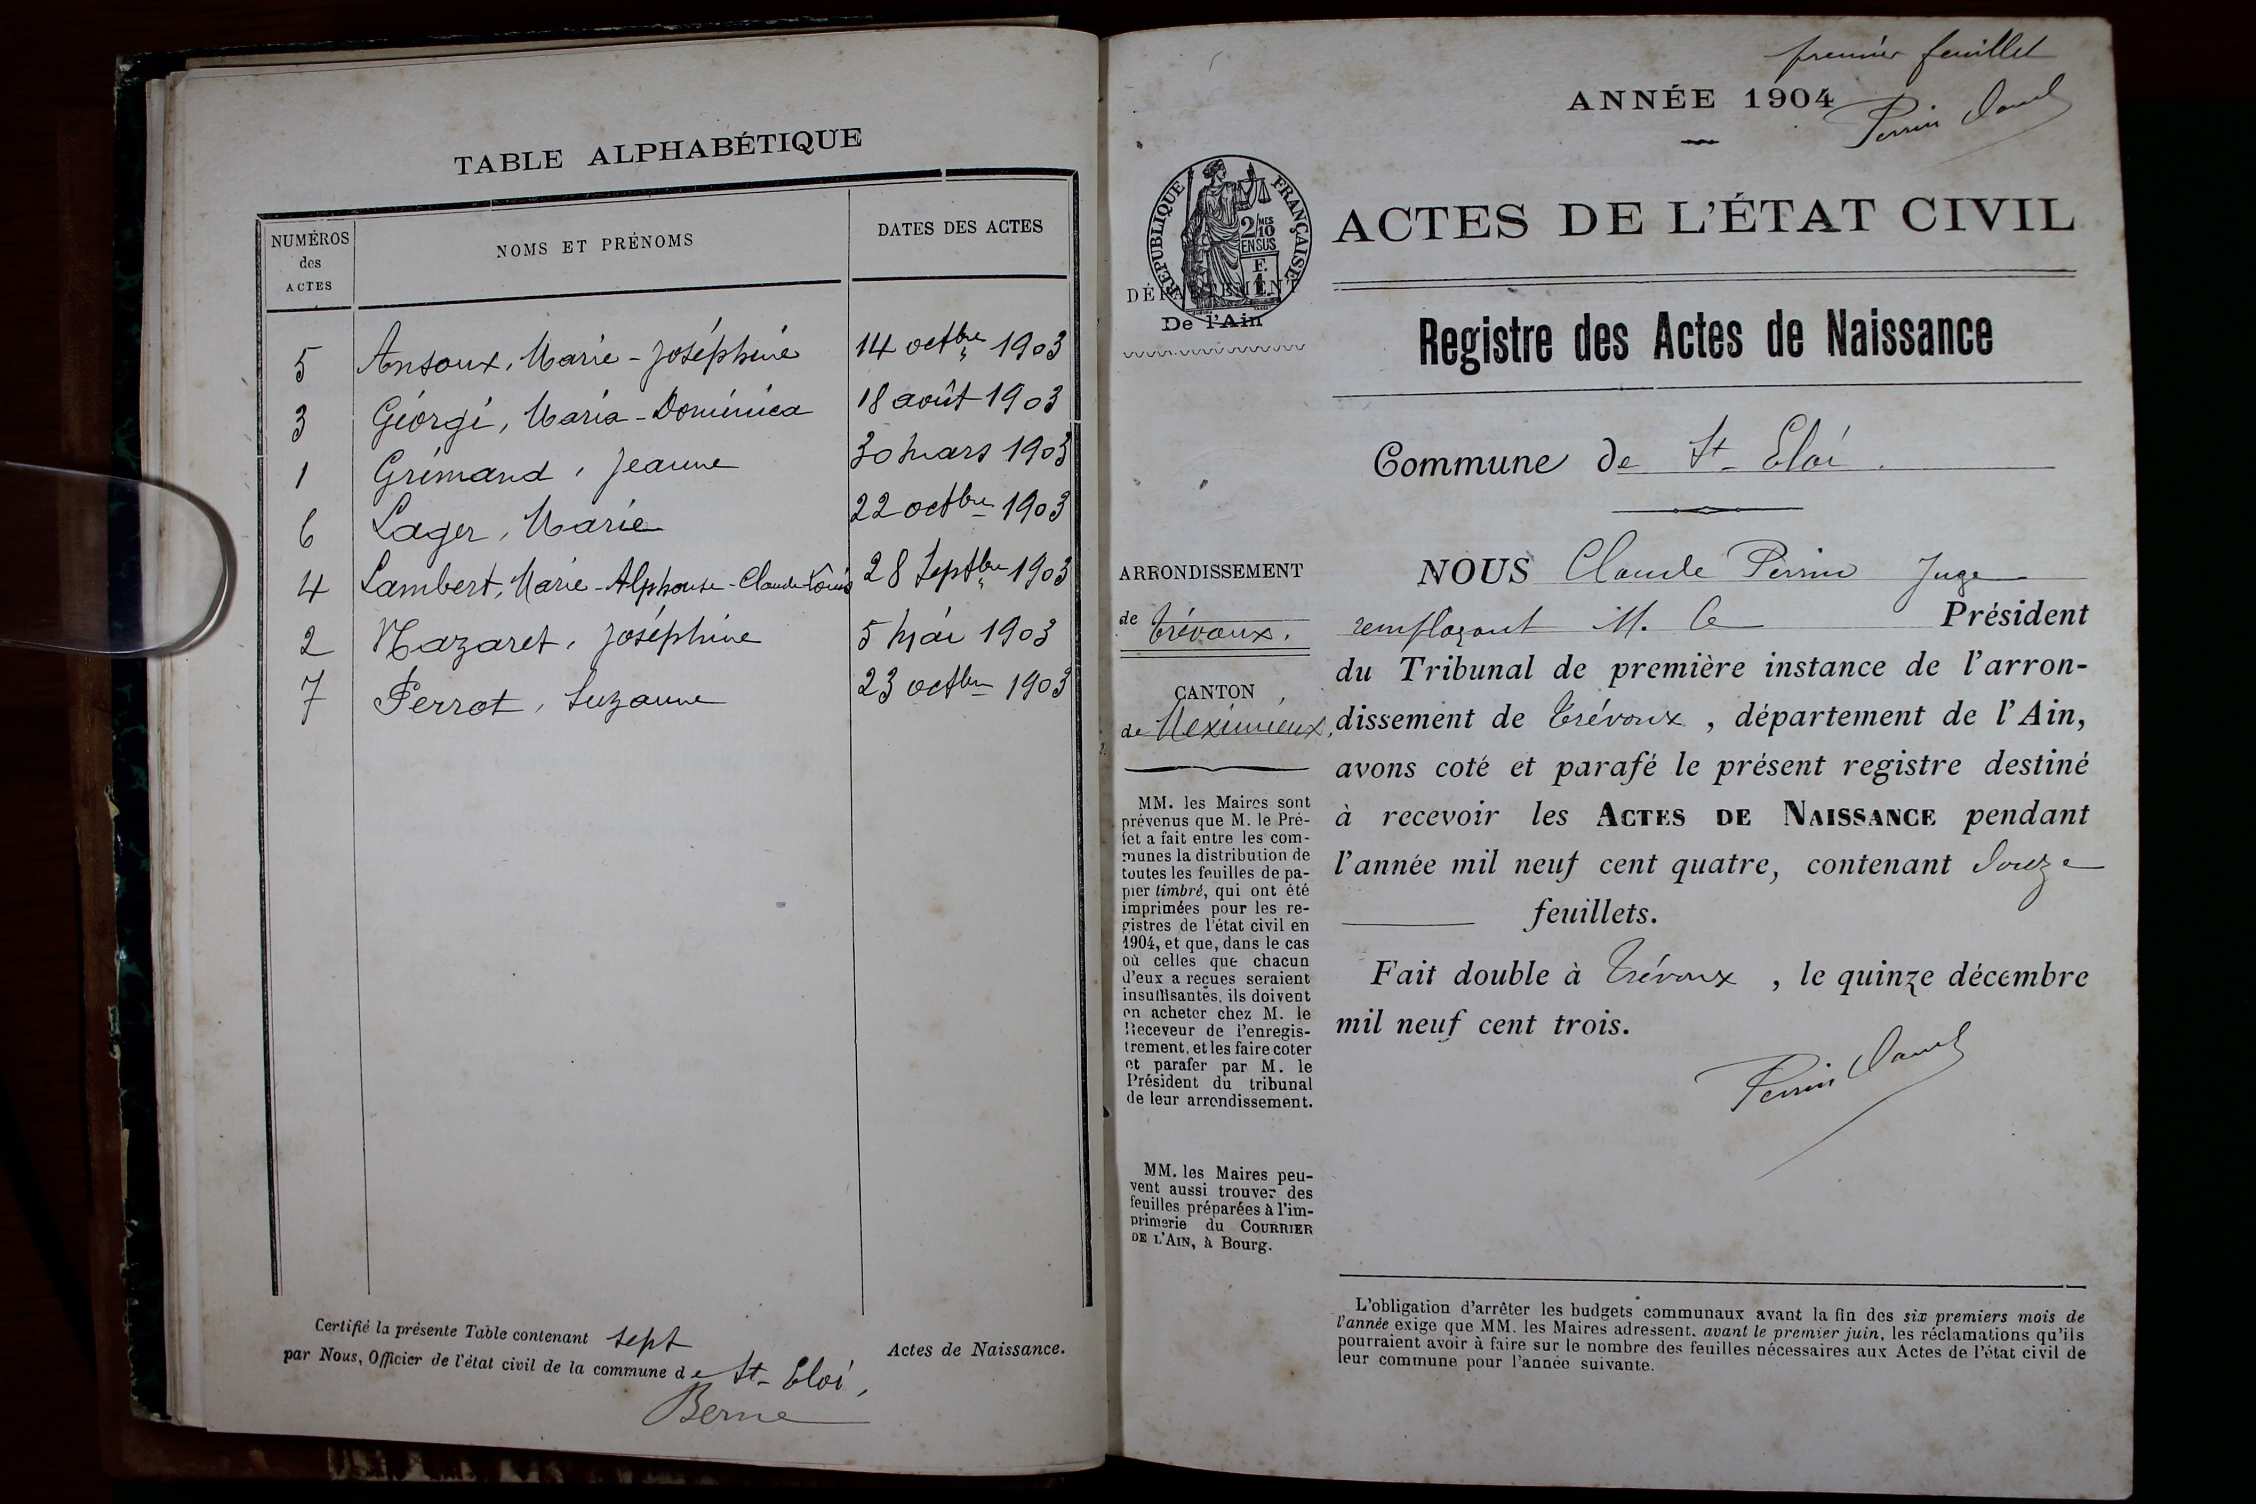 TABLE ALPHABÉTIQUE
NUMÉROS
des
ACTES
NOMS ET PRÉNOMS
DATES DES ACTES
5 Ansoux, Marie-Joséphine 14 octbre 1903
3 Géorgi, Maria-Dominica 18 août 1903
1 Grimand, Jeanne 30 mars 1903
6 Lager, Marie 22 octbre 1903
4 Lambert, Marie-Alphonse-Claude-Louis 28 Septbre 1903
2 Nazaret, Joséphine 5 Mai 1903
7 Perrot, Suzanne 23 octbre 1903
Certifié la présente Table contenant sept Actes de Naissance.
par Nous, Officier de l'état civil de la commune de St-Eloi,
Berne
premier feuillet
ANNÉE 1904
Perrin
RÉPUBLIQUE FRANÇAISE
2/MES
10
EN SUS
F.
1
DÉPARTEMENT
De l'Ain
ACTES DE L'ÉTAT CIVIL
Registre des Actes de Naissance
Commune de St-Eloi
ARRONDISSEMENT
de Trévoux.
CANTON
de Meximieux,
MM. les Maires sont
prévenus que M. le Pré-
fet a fait entre les com-
munes la distribution de
toutes les feuilles de pa-
pier timbré, qui ont été
imprimées pour les re-
gistres de l'état civil en
1904, et que, dans le cas
où celles que chacun
d'eux a reçues seraient
insuffisantes, ils doivent
en acheter chez M. le
Receveur de l'enregis-
trement, et les faire coter
et parafer par M. le
Président du tribunal
de leur arrondissement.
MM. les Maires peu-
vent aussi trouver des
feuilles préparées à l'im-
primerie du COURRIER
DE L'AIN, à Bourg.
NOUS Claude Perrin Juge
remplaçant M. le Président
du Tribunal de première instance de l'arron-
dissement de Trévoux, département de l'Ain,
avons coté et parafé le présent registre destiné
à recevoir les ACTES DE NAISSANCE pendant
l'année mil neuf cent quatre, contenant douze
feuillets.
Fait double à Trévoux, le quinze décembre
mil neuf cent trois.
Perrin
L'obligation d'arrêter les budgets communaux avant la fin des six premiers mois de
l'année exige que MM. les Maires adressent, avant le premier juin, les réclamations qu'ils
pourraient avoir à faire sur le nombre des feuilles nécessaires aux Actes de l'état civil de
leur commune pour l'année suivante.